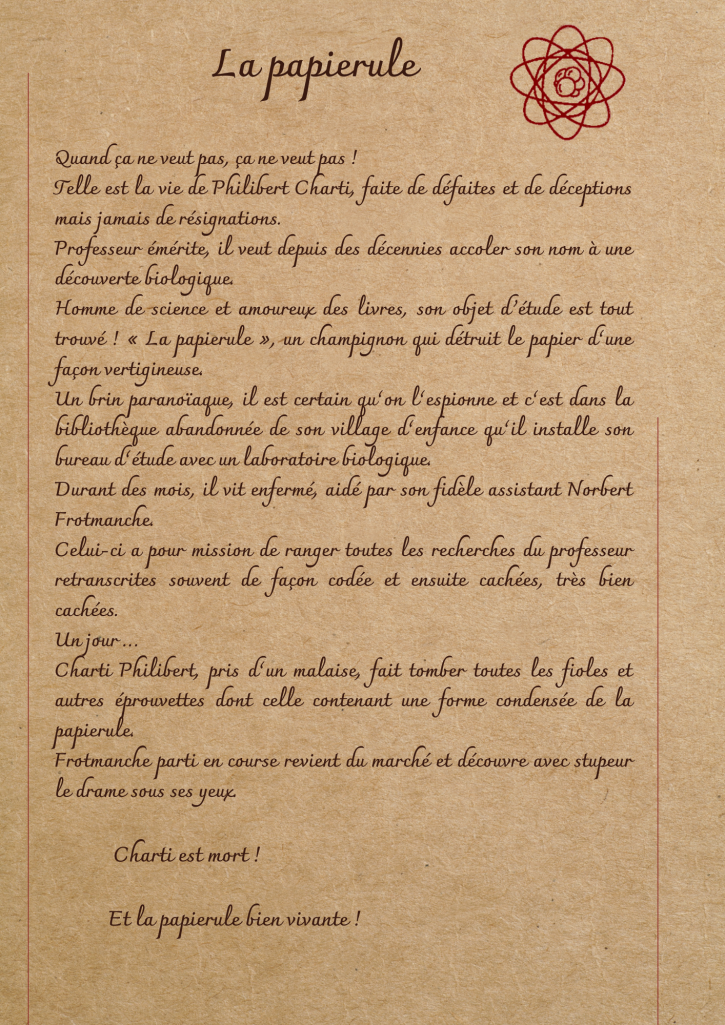 La papierule
Quand ça ne veut pas, ça ne veut pas !
Telle est la vie de Philibert Charti, faite de défaites et de déceptions
mais jamais de résignations.
Professeur émérite, il veut depuis des décennies accoler son nom à une
découverte biologique.
Homme de science et amoureux des livres, son objet d'étude est tout
trouvé ! « La papierule », un champignon qui détruit le papier d'une
façon vertigineuse.
Un brin paranoïaque, il est certain qu'on l'espionne et c'est dans la
bibliothèque abandonnée de son village d'enfance qu'il installe son
bureau d'étude avec un laboratoire biologique.
Durant des mois, il vit enfermé, aidé par son fidèle assistant Norbert
Frotmanche.
Celui-ci a pour mission de ranger toutes les recherches du professeur
retranscrites souvent de façon codée et ensuite cachées, très bien
cachées.
Un jour ...
Charti Philibert, pris d'un malaise, fait tomber toutes les fioles et
autres éprouvettes dont celle contenant une forme condensée de la
papierule.
Frotmanche parti en course revient du marché et découvre avec stupeur
le drame sous ses yeux.
Charti est mort !
Et la papierule bien vivante !